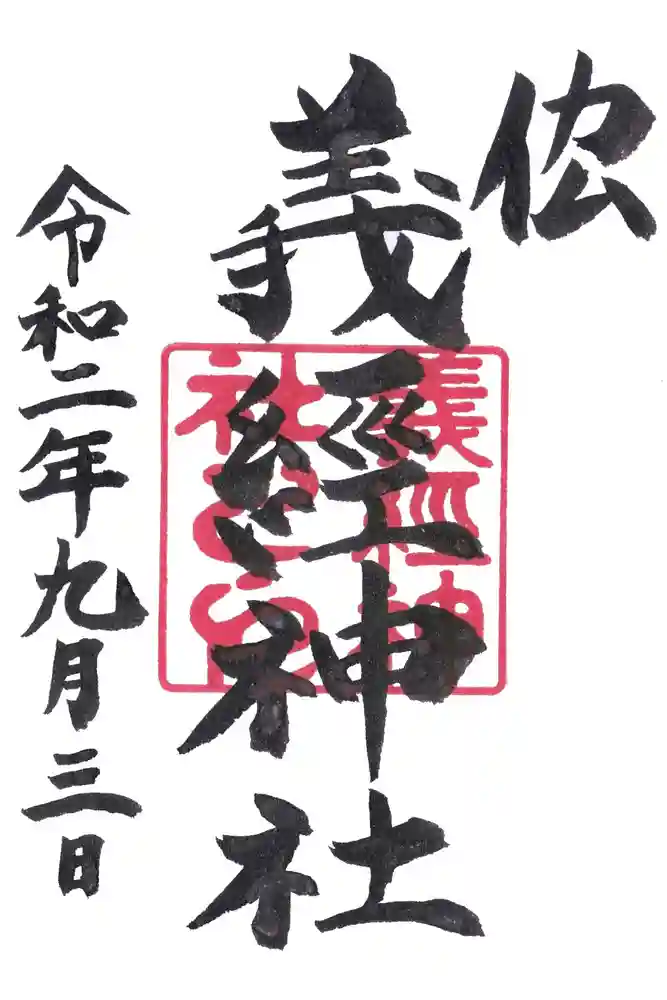 義經神社
令和二年九月三日
義經神
社之印